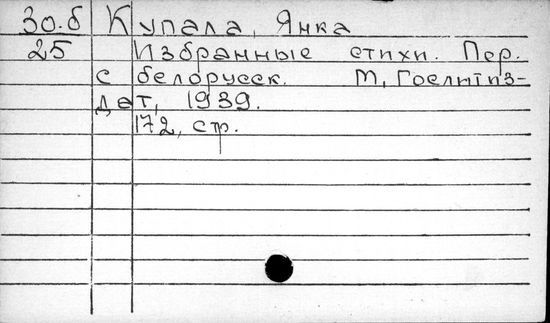 30.б Купала, Янка
25 Избранные стихи. Пер.
с белорусск. М, Гослитиз-
дет, 1939.
172, стр.